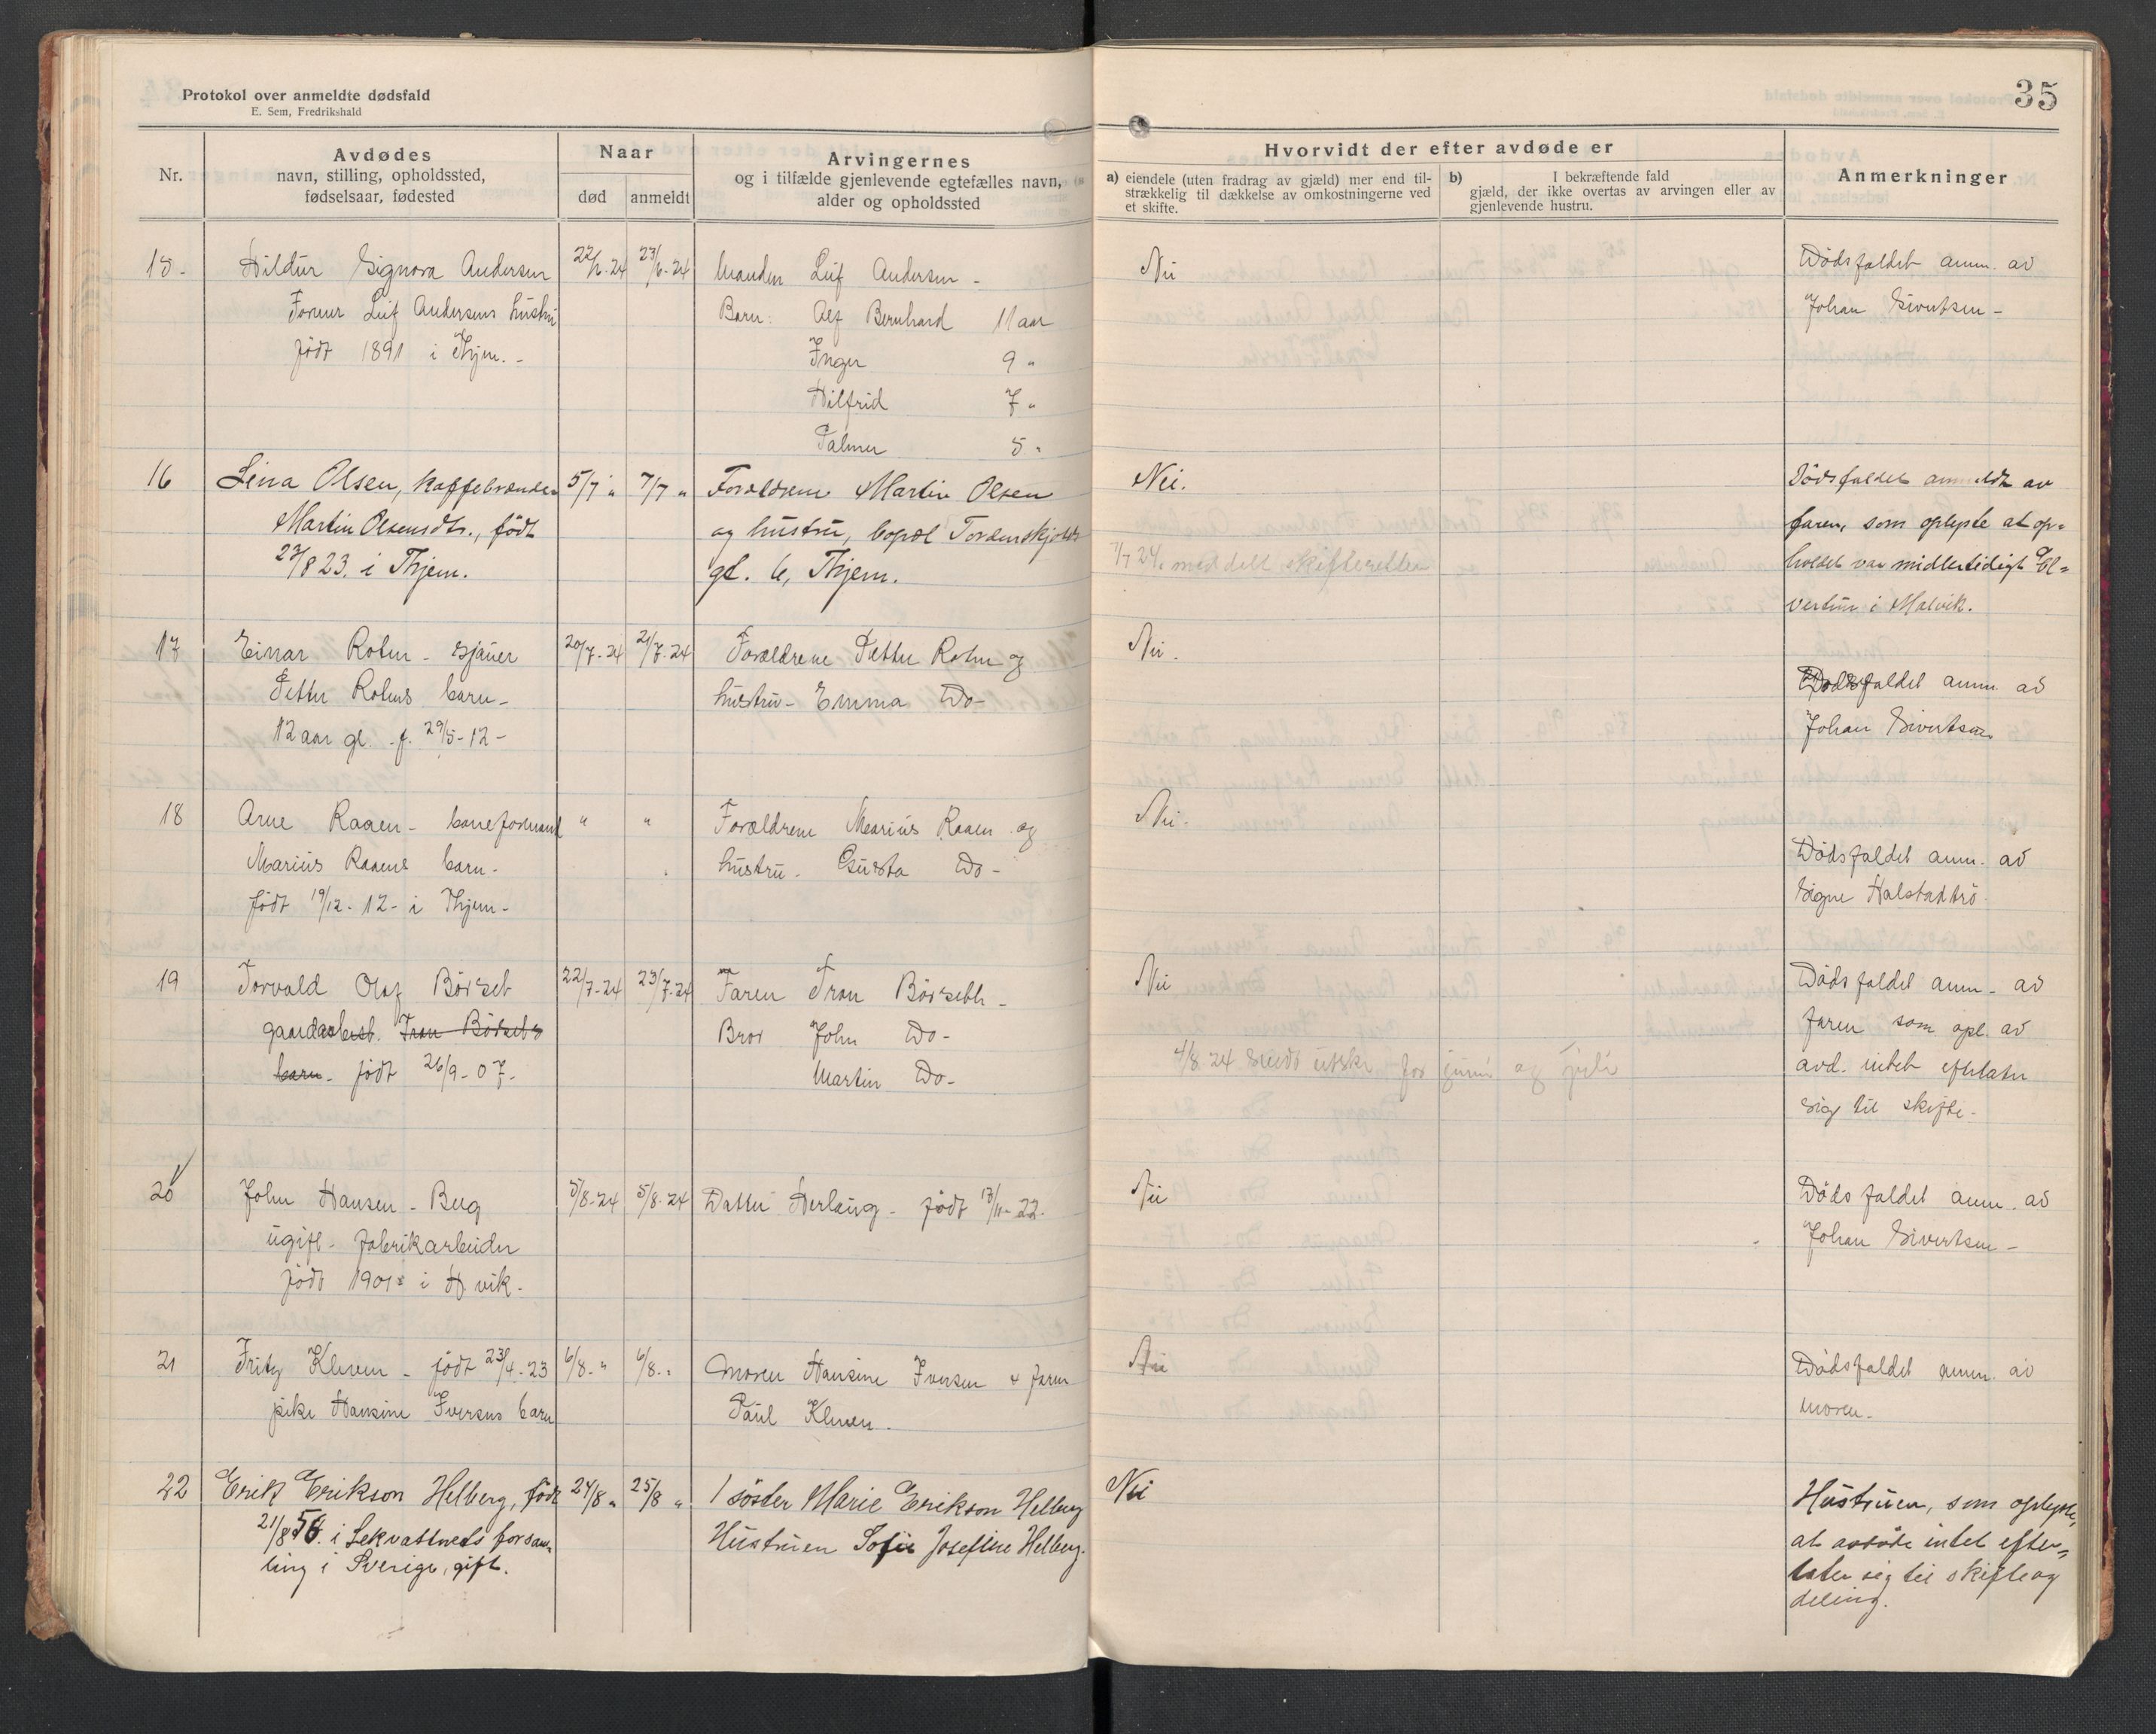 Protokol over anmeldte dødsfald
E. Sem, Fredrikshald
35
Nr.
Avdødes
navn, stilling, opholdssted,
fødselsaar, fødested
Naar
død
anmeldt
Arvingernes
og i tilfælde gjenlevende egtefælles navn,
alder og opholdssted
Hvorvidt der efter avdøde er
a) eiendele (uten fradrag av gjæld) mer end til-
strækkelig til dækkelse av omkostningerne ved
et skifte.
b) I bekræftende fald
gjæld, der ikke overtas av arvingen eller av
gjenlevende hustru.
Anmerkninger
15- Hildur Signora Andersen 22/6-24 23/6-24 Manden Leif Andersen - Nei Dødsfaldet anm. av
Leif Andersens hustru Barn: Alf Bernhard 11 aar Johan Sivertsen -
født 1891 i Thjem. - Inger 9 "
Hilfrid 7 "
Palmer 5 "
16 Lina Olsen, kaffebrænder 5/7 " 7/7 " Forældrene Martin Olsen Nei. Dødsfaldet anmeldt av
Martin Olsensdtr., født og hustru, bopæl Tordenskjolds faren, som oplyste at op=
23/8 23. i Thjem. gt. 6, Thjem. 7/7 24. meddelt skifteretten holdet var midlertidigt
i Malvik.
17 Einar Roten - sjauer 20/7-24 21/7-24 Forældrene Petter Roten og Nei. Dødsfaldet anm. av
Petter Rotens barn - hustru - Emma Do - Johan Sivertsen
12 aar gl. f. 29/5-12 -
18 Arne Raaen - baneformand " " Forældrene Marius Raaen og Nei. Dødsfaldet anm. av
Marius Raaens barn - hustru - Gusta Do - Signe Halstadtrø
født 19/12-12- i Thjem -
19 Torvald Olaf Børset 22/7-24 23/7-24 Faren Tron Børseth - Nei Dødsfaldet anm - av
gaardsarbeid. Tron Børsets Bror John Do - faren som opl. av
barn - født 26/9-07- Martin Do - 4/8 24 sendt utskr for juni og juli avd. intet efterlater
sig til skifte -
20 John Hansen - Berg 5/8-24 5/8-24 Datter Herlaug - født 17/11-22- Nei Dødsfaldet anm. av
ugift - fabrikarbeider Johan Sivertsen -
født 1901 i H.vik -
21 Fritz Kleven - født 23/4-23 6/8- " 6/8- " Moren Hansine Iversen & faren Nei Dødsfaldet anm. av
pike Hansine Iversens barn Paul Kleven. moren -
22 Erik Erikson Helberg, født 24/8 " 25/8 " 1 søster Marie Erikson Helberg Nei Hustruen, som oplyste,
21/8 56. i Lekvattnets forsam= Hustruen Sofie Josefine Helberg. at avdøde intet efter=
ling i Sverige, gift. later sig til skifte og
deling.